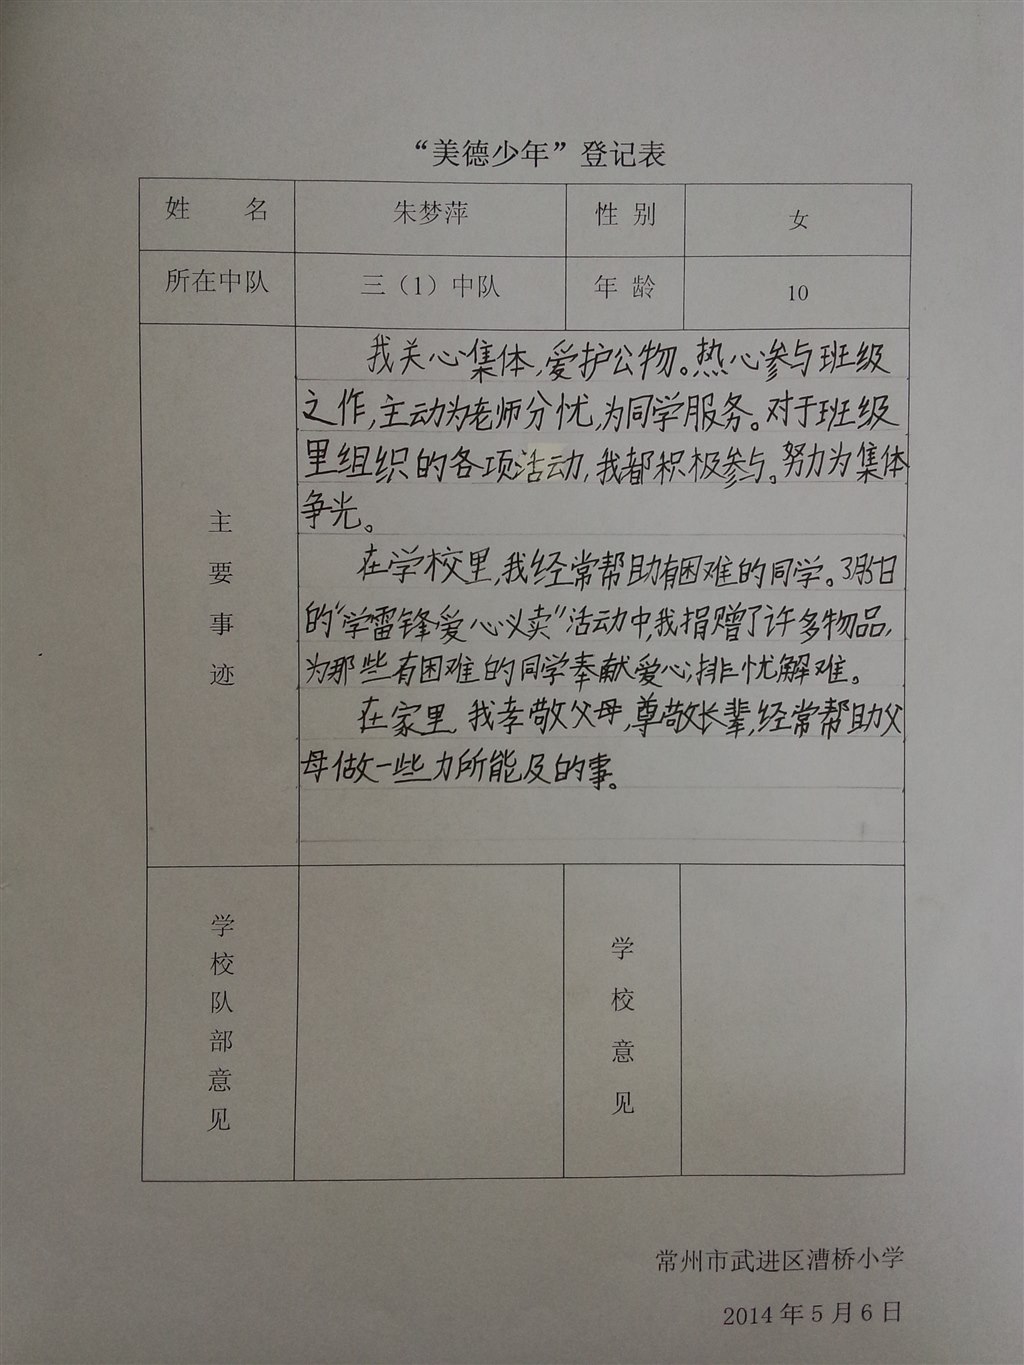 “美德少年”登记表
姓 名 朱梦萍 性 别 女
所在中队 三（1）中队 年 龄 10
主要事迹
我关心集体,爱护公物。热心参与班级
之作,主动为老师分忧,为同学服务。对于班级
里组织的各项活动,我都积极参与。努力为集体
争光。
在学校里,我经常帮助有困难的同学。3月5日
的“学雷锋爱心义卖”活动中,我捐赠了许多物品,
为那些有困难的同学奉献爱心,排忧解难。
在家里,我孝敬父母,尊敬长辈,经常帮助父
母做一些力所能及的事。
学校队部意见
学校意见
常州市武进区漕桥小学
2014年5月6日